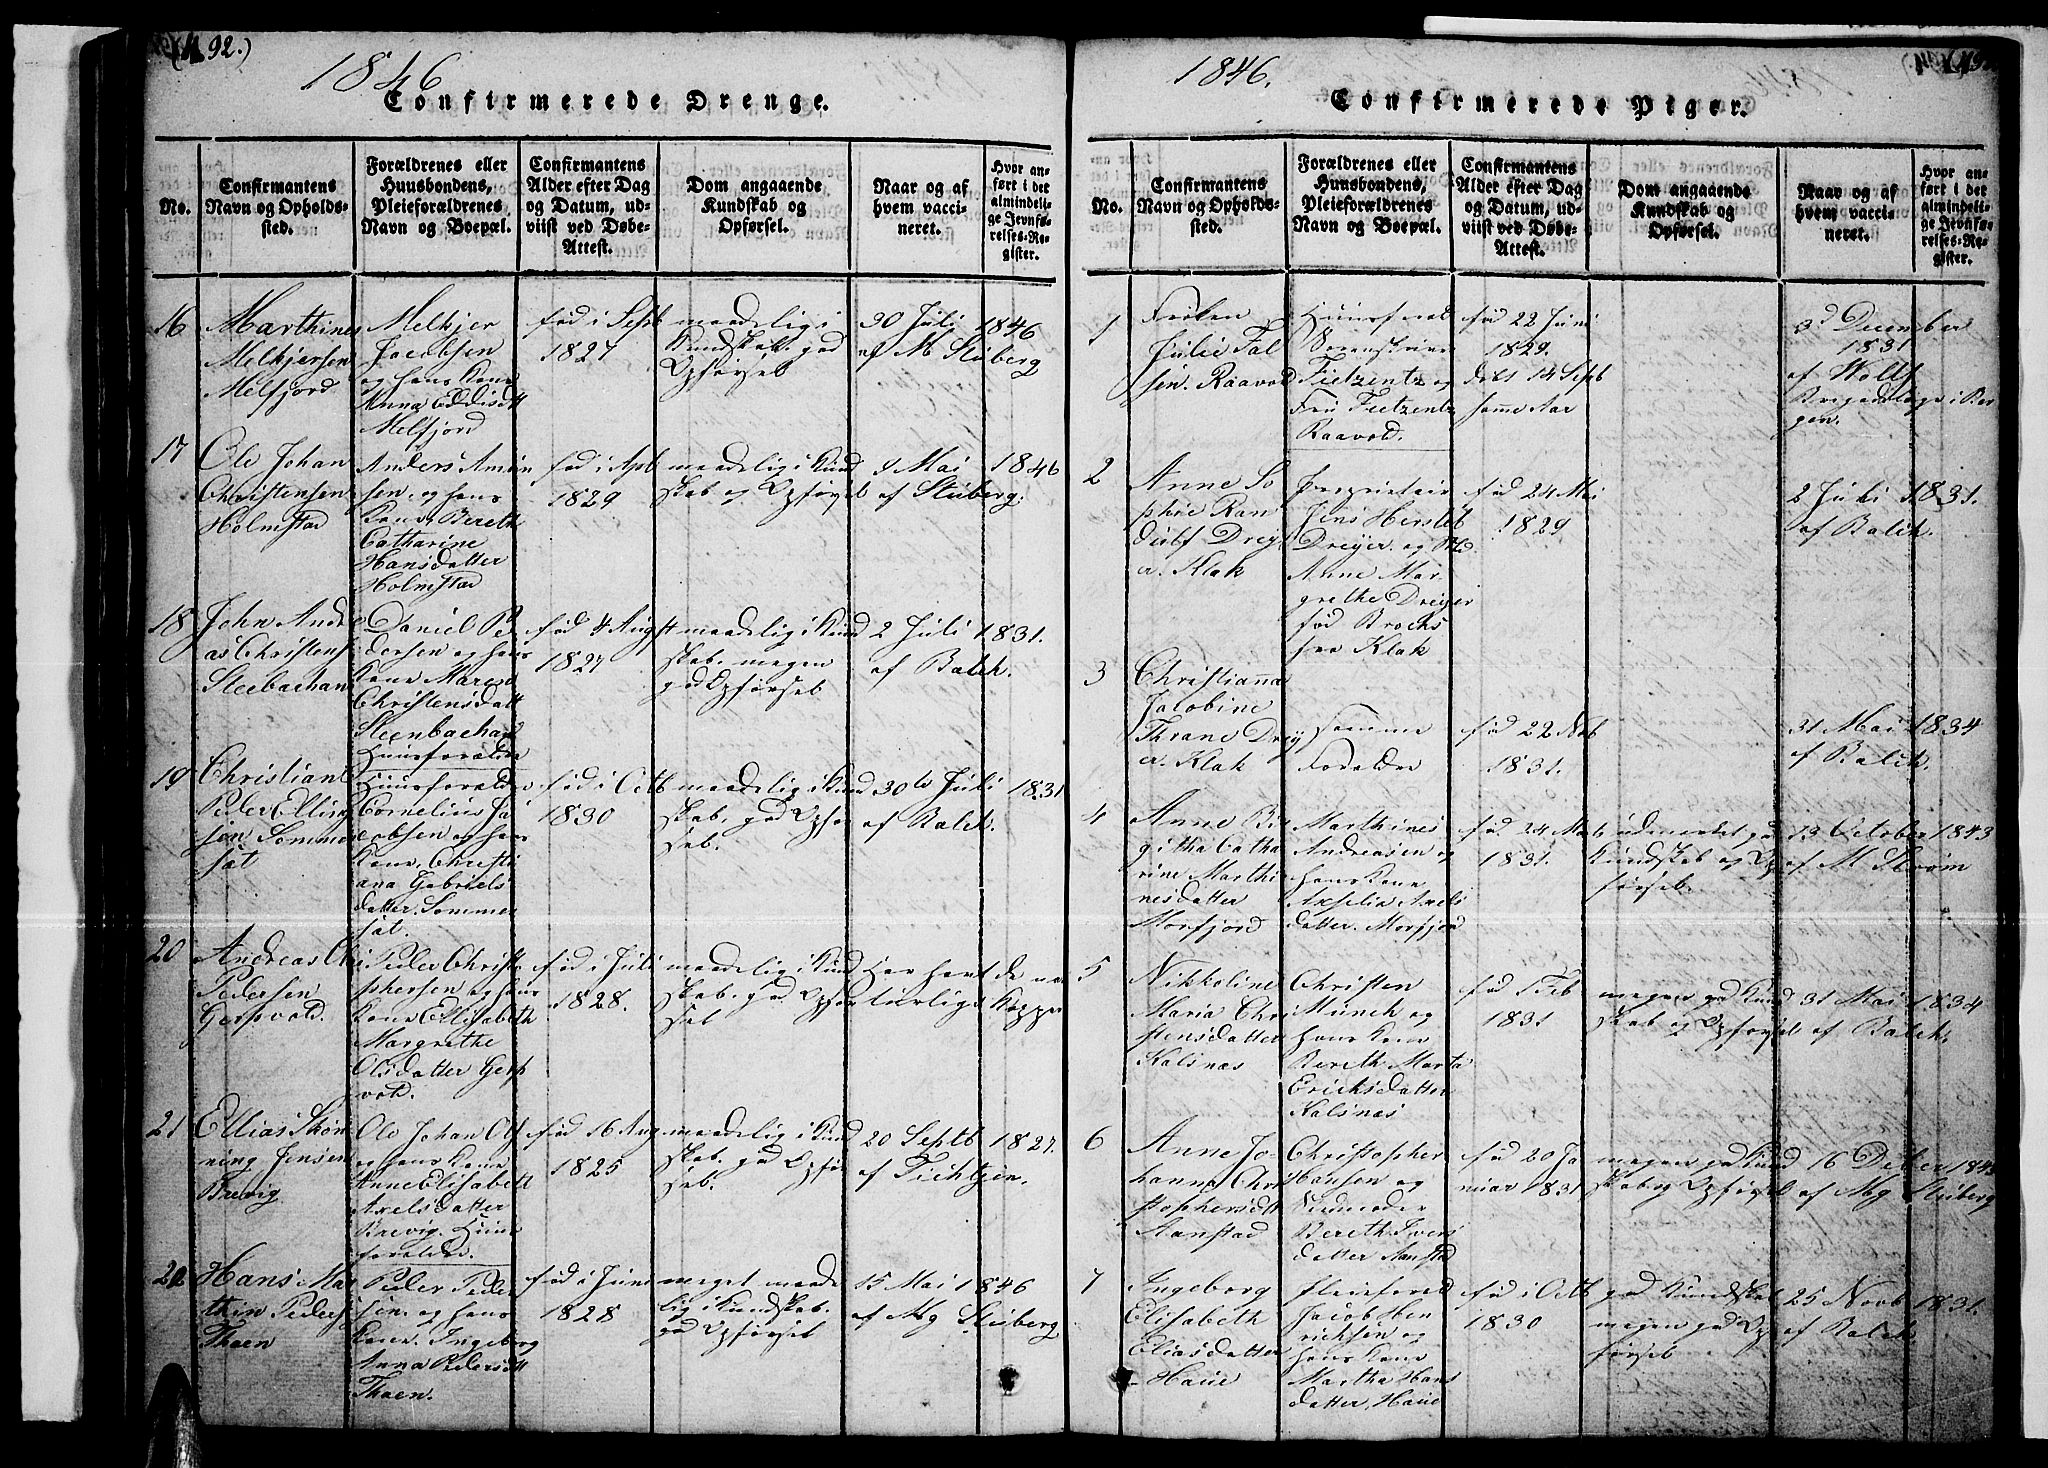 92.)
1846
Confirmerede Drenge.
No.
Confirmantens
Navn og Opholds-
sted.
Forældrenes eller
Huusbondens,
Pleieforældrenes
Navn og Boepæl.
Confirmantens
Alder efter Dag
og Datum, ud-
viist ved Døbe-
Attest.
Dom angaaende
Kundskab og
Opførsel.
Naar og af
hvem vacci-
neret.
Hvor an-
ført i det
almindeli-
ge Jevnfø-
relses-Re-
gister.
16
Marthines
Melkjersen
Melfjord
Melkjer
Jacobsen
og hans Kone
Anna Eddisdtt
Melfjord
fød i Septb
1827
maadelig i
Kundskab. god
Opførsel
30 Juli 1846
af M Stüberg
17
Ole Johan
Christensen
Holmstad
Anders Amun
sen. og hans
Kone, Bereth
Catharine
Hansdatter
Holmstad
fød i Apb
1829
maadelig i Kund
skab og Opførsel
9 Mai 1846
af Stüberg.
18
John Andre
as Christens
Steebachan
Daniel Pe
dersen og hans
Kone Maren
Christensdatt
Steenbachan
Huusforældre
fød 4 Augst
1827
maadelig i Kund
skab. megen
god Opførsel
2 Juli 1831.
af Balck.
19
Christian
Peder Elling
sen. Sommer
sæt
Huusforældre
Cornelius Ja
cobsen og hans
Kone, Christi
ana Gabriels
datter. Sommer
sæt.
fød i Octb
1830
maadelig i Kund
skab. god Opfør
sel.
30te Juli 1831
af Balck.
20
Andreas Ch
Pedersen
Gerpvold.
Peder Christo
phersen og hans
Kone Ellisabeth
Margrethe
Olsdatter Gerp
vold.
fød i Juli
1828.
maadelig i Kund
skab. god Opfør
sel
Har havt de na
turlige Kopper
21
Ellias Skøn
ning Jensen
Brevig
Ole Johan Ols
og hans Kone
Anne Elisabett
Axelsdatter
Brevig. Huus
forældre.
fød 16 Aug
1825
maadelig i Kund
skab. god Opfør
sel.
20 Septb 1827.
af Tichtzen.
22
Hans Mar
thin Peders
Thoen
Peder Peder
sen. og hans
Kone. Ingeborg
Anna Pedersdtt
Thoen.
fød i Juni
1828
meget maade
lig i Kundskab.
god Opførsel
15 Mai 1846
af Mg Stüberg
1846.
Confirmerede Piger.
No.
Confirmantens
Navn og Opholds-
sted.
Forældrenes eller
Huusbondens,
Pleieforældrenes
Navn og Boepæl.
Confirmantens
Alder efter Dag
og Datum, ud-
viist ved Døbe-
Attest.
Dom angaaende
Kundskab og
Opførsel.
Naar og af
hvem vacci-
neret.
Hvor an-
ført i det
almindeli-
ge Jevnfø-
relses-Re-
gister.
1
Frøken
Julie Fal
sen. Raavold
Sorenskriver
Fietzentz og
Fru Fietzentz
Raavold.
fød 22 Juni
1829.
døbt 14 Septb
samme Aar
3d December
1831
af Wolff
Brigadelæge i Ber
gen.
2
Anne So
phie Ran
dulf Drey
er. Klak
Proprietair
Jens Hersteb
Dreyer. og Md.
Anne Mar
grethe Dreyer
fød Brochs
fra Klak
fød 24 Mai
1829
2 Juli 1831.
af Balck.
3
Christianna
Jacobine
Thrane Drey
er. Klak
Samme
Forældre
fød 22 Nob
1831.
31 Mai 1834
af Balck.
4
Anne Bir
githa Catha
rine Marthi
nesdatter
Morfjord
Marthines
Andreasen og
hans Kone
Axselia Axels
datter. Morfjord
fød 24 Mai
1831.
udmærket god
Kundskab og Op
førsel.
13 October 1843
af M Strøm
5
Nikkoline
Maria Chri
stensdatter
Kalsnæs
Christen
Munch og
hans Kone
Bereth Marta
Ericksdatter
Kalsnæs
fød 1 Feb
1831
megen god Kund
skab og Opførsel
31 Mai 1834
af Balck.
6
Anne Jo
hanna Chri
stophersdtt
Aanstad
Christopher
Hansen og
Stedmoder
Bereth Ivers
datter Aanstad
fød 20 Ja
nuar 1831
megen god Kund
skab og Opførsel
16 Deber 1843
af Mg Stüberg
7
Ingeborg
Elisabeth
Eliasdatter
Haue
Pleieforæld
Jacob Hen
richsen og
hans Kone
Martha Hans
datter, Haue
fød i Octb
1830
god Kundskab
megen god Op
førsel
25 Novb 1831.
af Balck